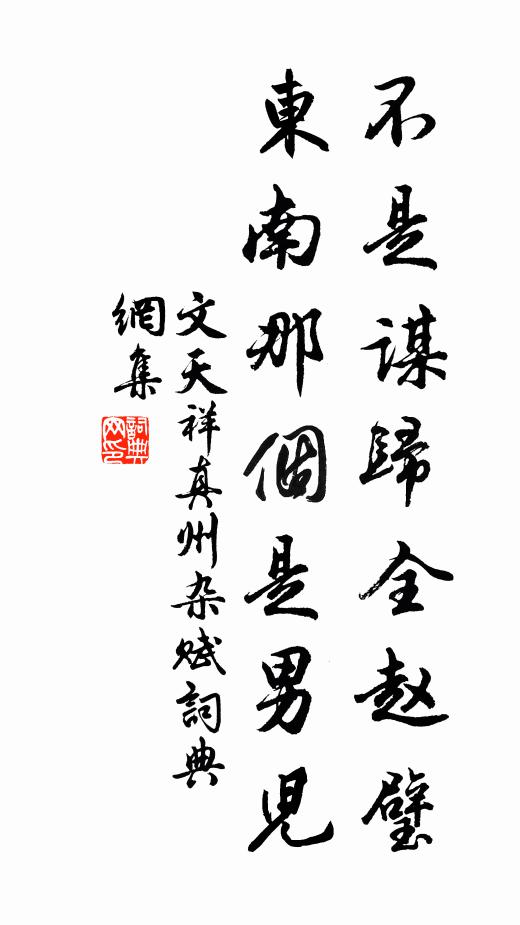 不是谋歸全赵璧
東南那個是男兒
文天祥真州杂赋詞典
網集
詞典网印